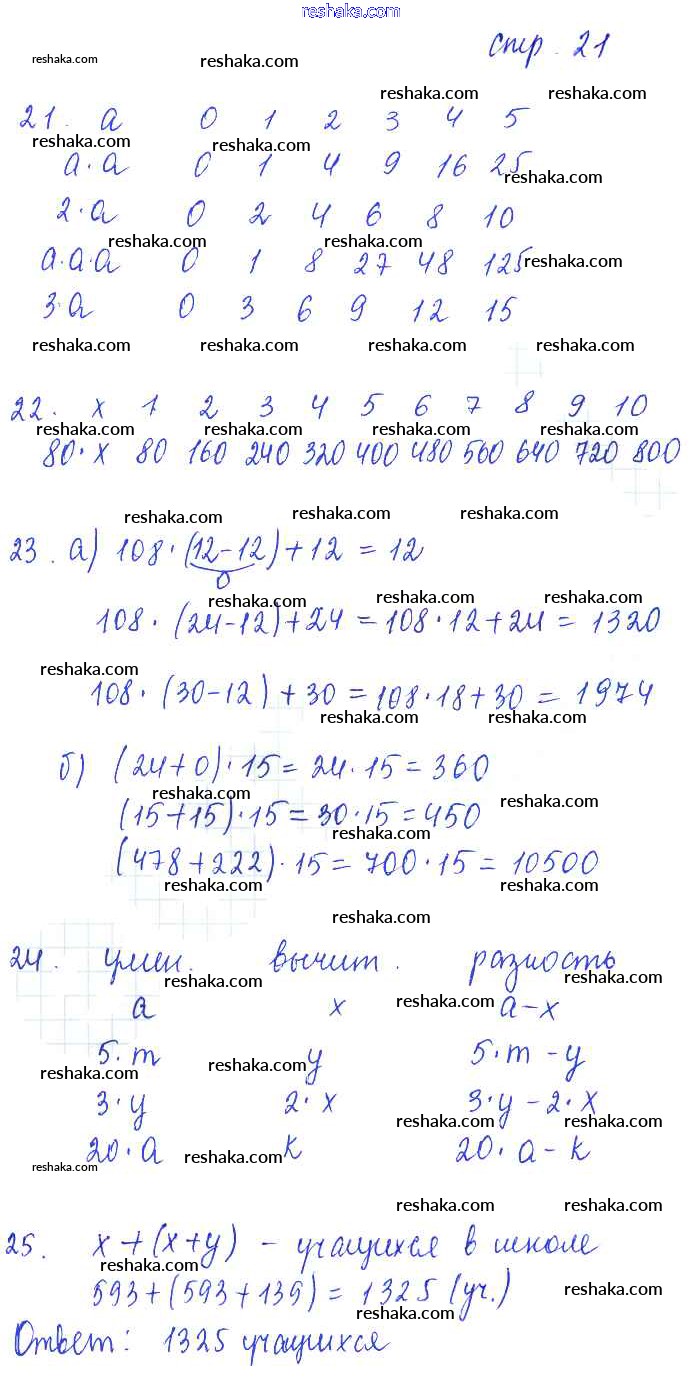 reshaka.com
стр. 21
reshaka.com reshaka.com
reshaka.com reshaka.com
21. a 0 1 2 3 4 5
reshaka.com reshaka.com
a·a 0 1 4 9 16 25
reshaka.com
2·a 0 2 4 6 8 10
reshaka.com reshaka.com
a·a·a 0 1 8 27 48 125 reshaka.com
3·a 0 3 6 9 12 15
reshaka.com reshaka.com reshaka.com reshaka.com
22. x 1 2 3 4 5 6 7 8 9 10
reshaka.com reshaka.com reshaka.com reshaka.com
80·x 80 160 240 320 400 480 560 640 720 800
reshaka.com reshaka.com reshaka.com
23. a) 108·(12-12)+12 = 12
0
reshaka.com reshaka.com reshaka.com
108·(24-12)+24 = 108·12+24 = 1320
reshaka.com
108·(30-12)+30 = 108·18+30 = 1974
reshaka.com reshaka.com
б) (24+0)·15 = 24·15 = 360
reshaka.com
(15+15)·15 = 30·15 = 450
reshaka.com
(478+222)·15 = 700·15 = 10500
reshaka.com reshaka.com reshaka.com
reshaka.com
24. умен. вычит. разность
reshaka.com reshaka.com reshaka.com
a x a-x
5·m y 5·m-y
reshaka.com reshaka.com
3·y 2·x 3·y-2·x
reshaka.com reshaka.com
20·a k 20·a-k
reshaka.com reshaka.com
reshaka.com reshaka.com
25. x+(x+y) - учащихся в школе
reshaka.com
593+(593+139) = 1325 (уч.)
reshaka.com
reshaka.com
Ответ: 1325 учащихся